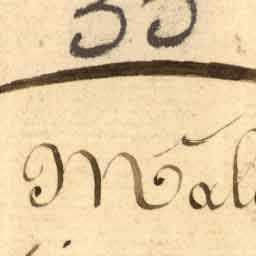 33
Mal